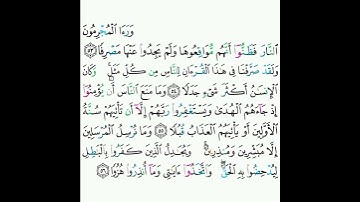 وَرَءَا الْمُجْرِمُونَ
النَّارَ فَظَنُّوا أَنَّهُم مُّوَاقِعُوهَا وَلَمْ يَجِدُوا عَنْهَا مَصْرِفًا ٥٣
وَلَقَدْ صَرَّفْنَا فِي هَذَا الْقُرْءَانِ لِلنَّاسِ مِن كُلِّ مَثَلٍ وَكَانَ
الْإِنسَنُ أَكْثَرَ شَيْءٍ جَدَلًا ٥٤ وَمَا مَنَعَ النَّاسَ أَن يُؤْمِنُوا
إِذْ جَاءَهُمُ الْهُدَى وَيَسْتَغْفِرُوا رَبَّهُمْ إِلَّا أَن تَأْتِيَهُمْ سُنَّةُ
الْأَوَّلِينَ أَوْ يَأْتِيَهُمُ الْعَذَابُ قُبُلًا ٥٥ وَمَا نُرْسِلُ الْمُرْسَلِينَ
إِلَّا مُبَشِّرِينَ وَمُنذِرِينَ وَيُجَدِلُ الَّذِينَ كَفَرُوا بِالْبَطِلِ
لِيُدْحِضُوا بِهِ الْحَقَّ وَاتَّخَذُوا ءَايَتِي وَمَا أُنذِرُوا هُزُوًا ٥٦